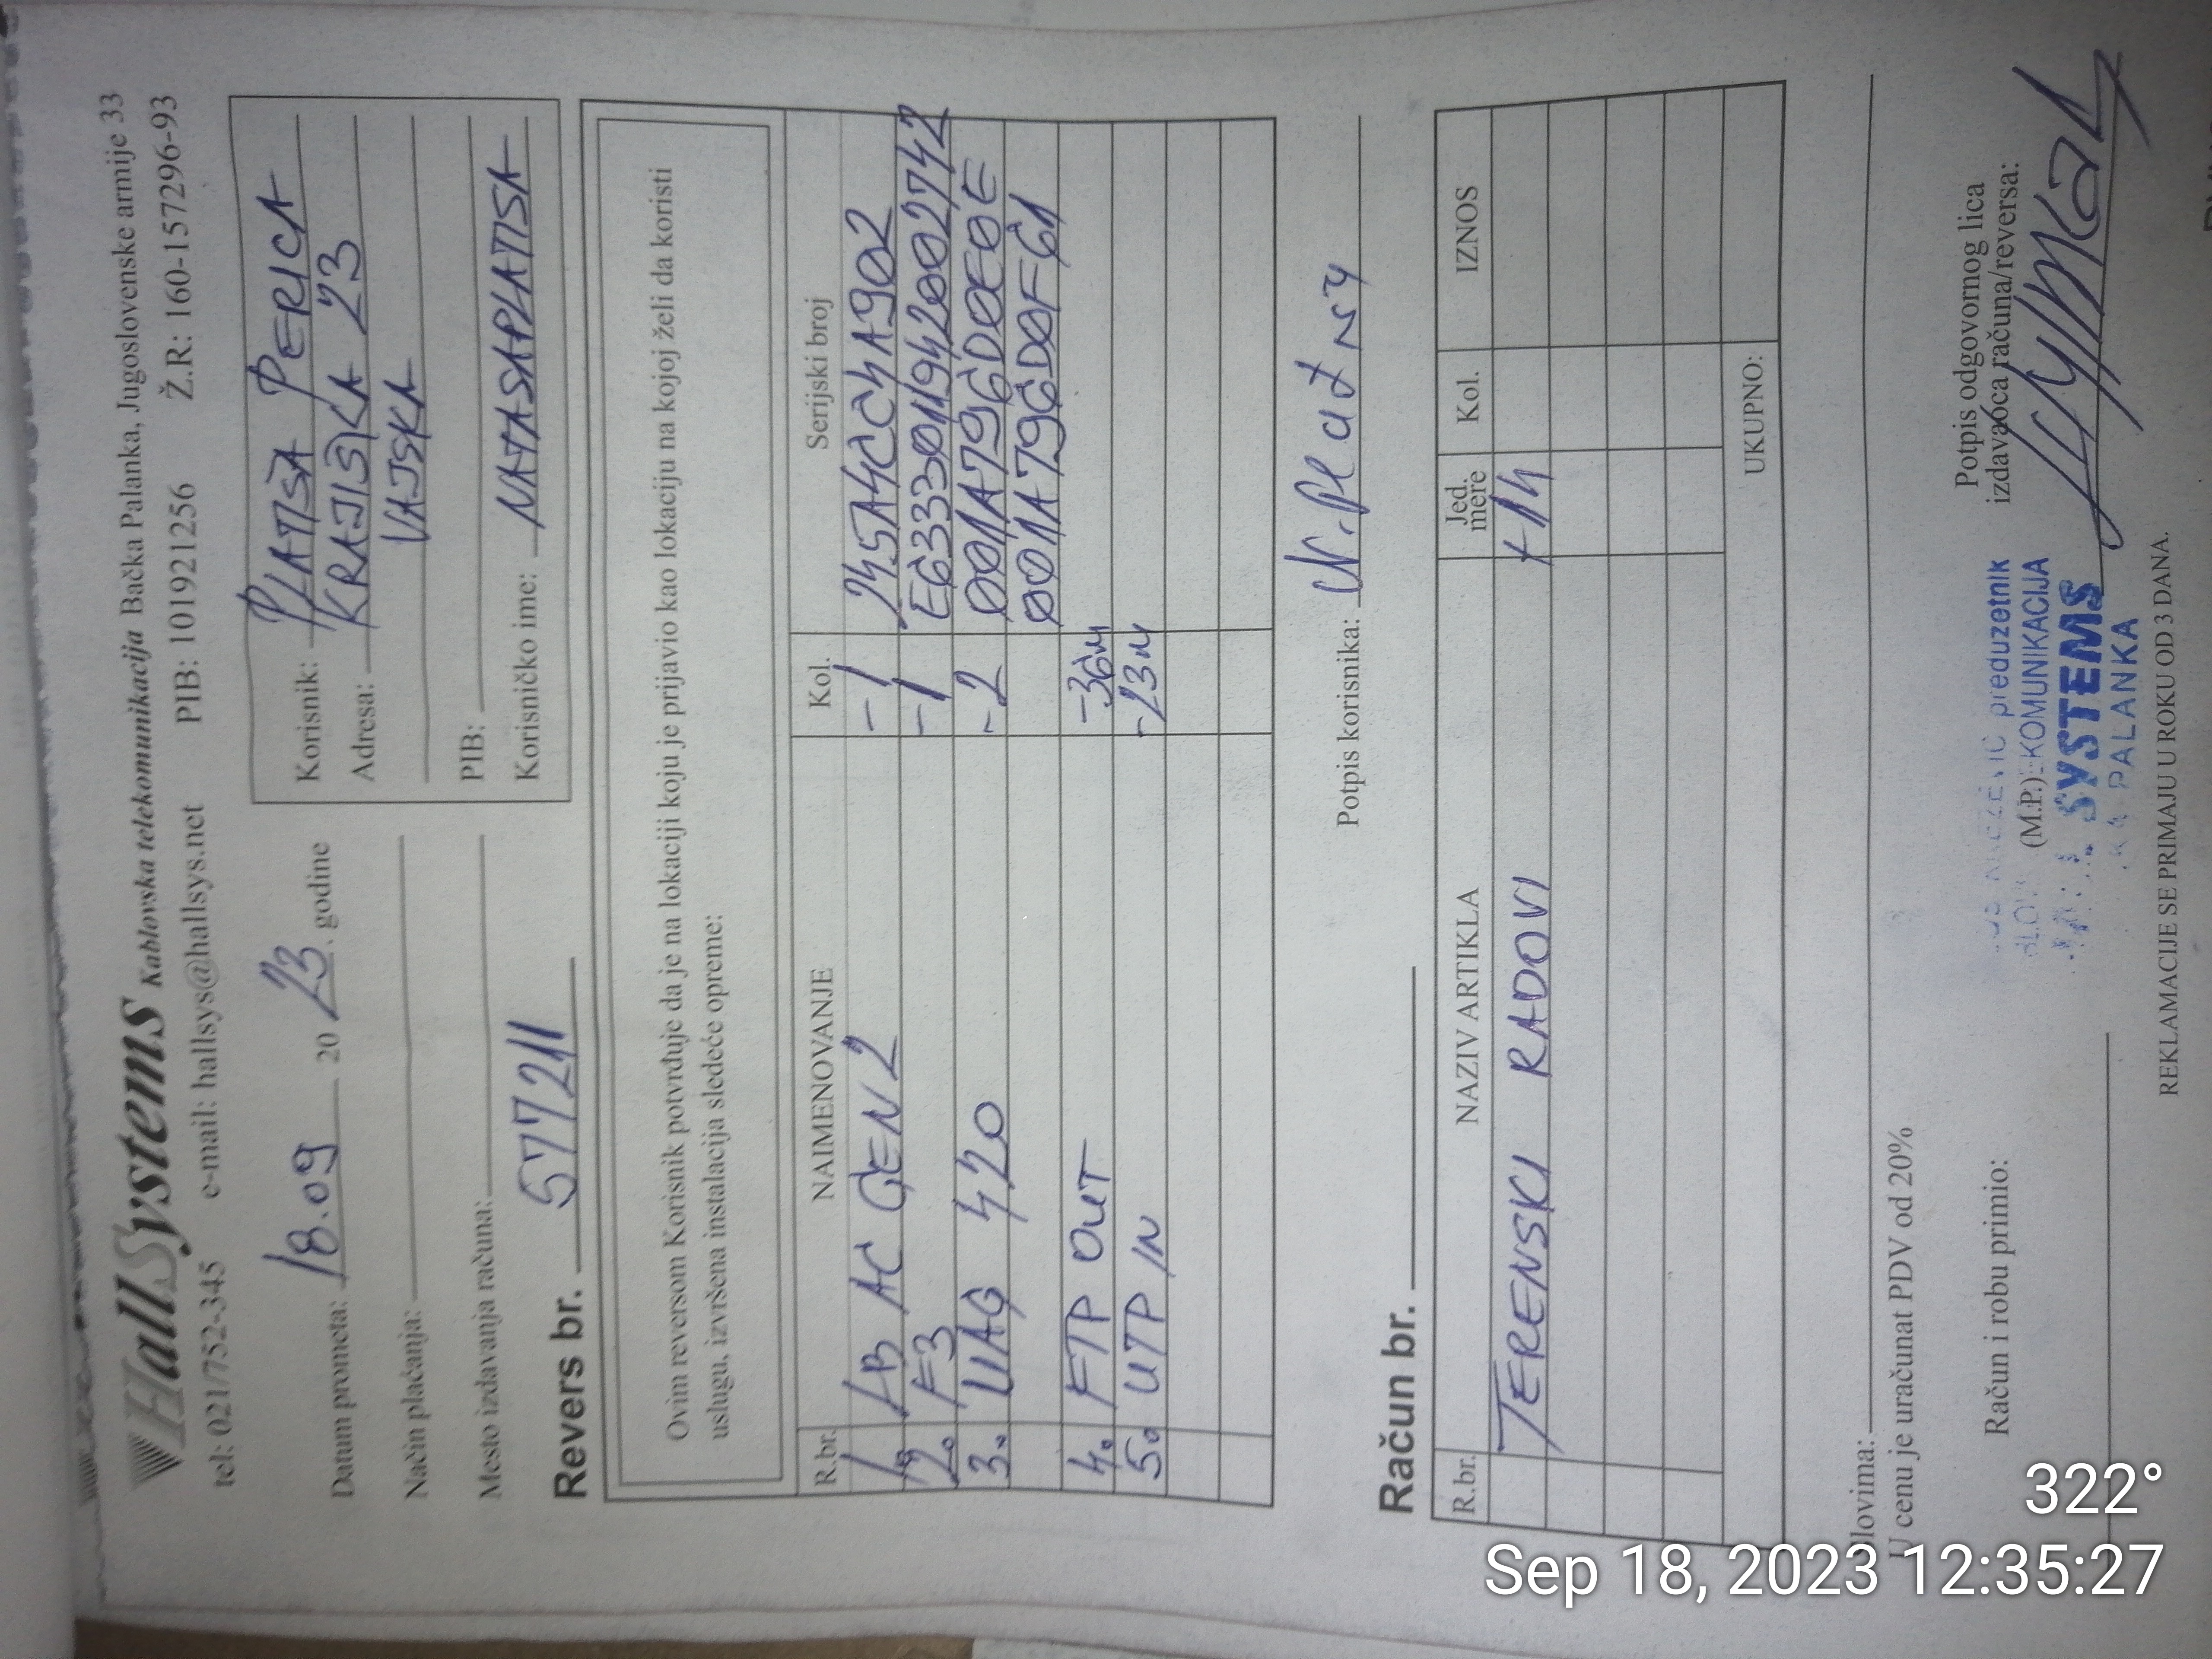 HallSystems Kablovska telekomunikacija Bačka Palanka, Jugoslovenske armije 33
tel: 021/752-345 e-mail: hallsys@hallsys.net PIB: 101921256 Ž.R: 160-157296-93
Datum prometa: 18.09 20 23. godine
Način plaćanja:
Mesto izdavanja računa:
Revers br. 577211
Korisnik: PLATIŠA PERICA
Adresa: KRAJIŠKA 23
VAJSKA
PIB:
Korisničko ime: NATASAPLATISA
Ovim reversom Korisnik potvrđuje da je na lokaciji koju je prijavio kao lokaciju na kojoj želi da koristi
uslugu, izvršena instalacija sledeće opreme:
R.br. NAIMENOVANJE Kol. Serijski broj
1. LB AC GEN 2 -1 245A4CC4A902
2. F3 -1 E6333011942002742
3. MAG 420 -2 001A796D0E0E
001A796D0F61
4. FTP OUT -36m
5. UTP IN -23m
Potpis korisnika:
Račun br.
R.br. NAZIV ARTIKLA Jed. mere Kol. IZNOS
TERENSKI RADOVI +1h
UKUPNO:
lovima:
U cenu je uračunat PDV od 20%
Račun i robu primio:
(M.P.)
preduzetnik
KOMUNIKACIJA
SYSTEMS
PALANKA
Potpis odgovornog lica
izdavaoca računa/reversa:
REKLAMACIJE SE PRIMAJU U ROKU OD 3 DANA.
322°
Sep 18, 2023 12:35:27